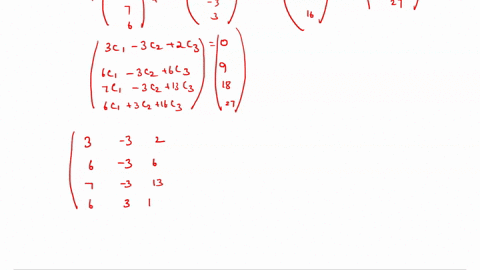 7 -3
6 3 16 27
3C1 - 3C2 + 2C3 = 0
6C1 - 3C2 + 6C3 9
7C1 - 3C2 + 13C3 18
6C1 + 3C2 + 16C3 27
3 -3 2
6 -3 6
7 -3 13
6 3 1